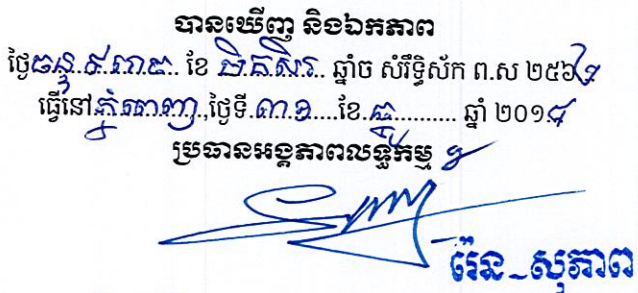 បានឃើញ និងឯកភាព
ថ្ងៃចន្ទ.៩.រោជ.. ខែ មិគសិរ.. ឆ្នាំច សំរឹទ្ធិស័ក ព.ស ២៥៦២
ធ្វើនៅភ្នំពេញ.,ថ្ងៃទី.៣១....ខែ.ធ្នូ.......... ឆ្នាំ ២០១៨
ប្រធានអង្គភាពលទ្ធកម្ម
រ៉េន-សុភាព